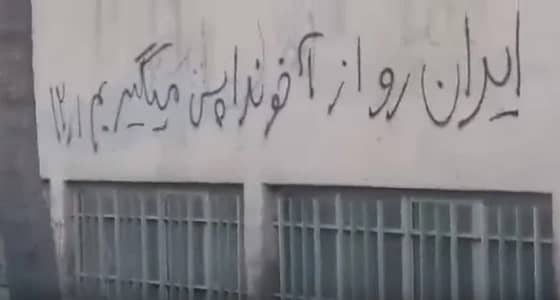 ایران رو از آخوندا پس میگیریم